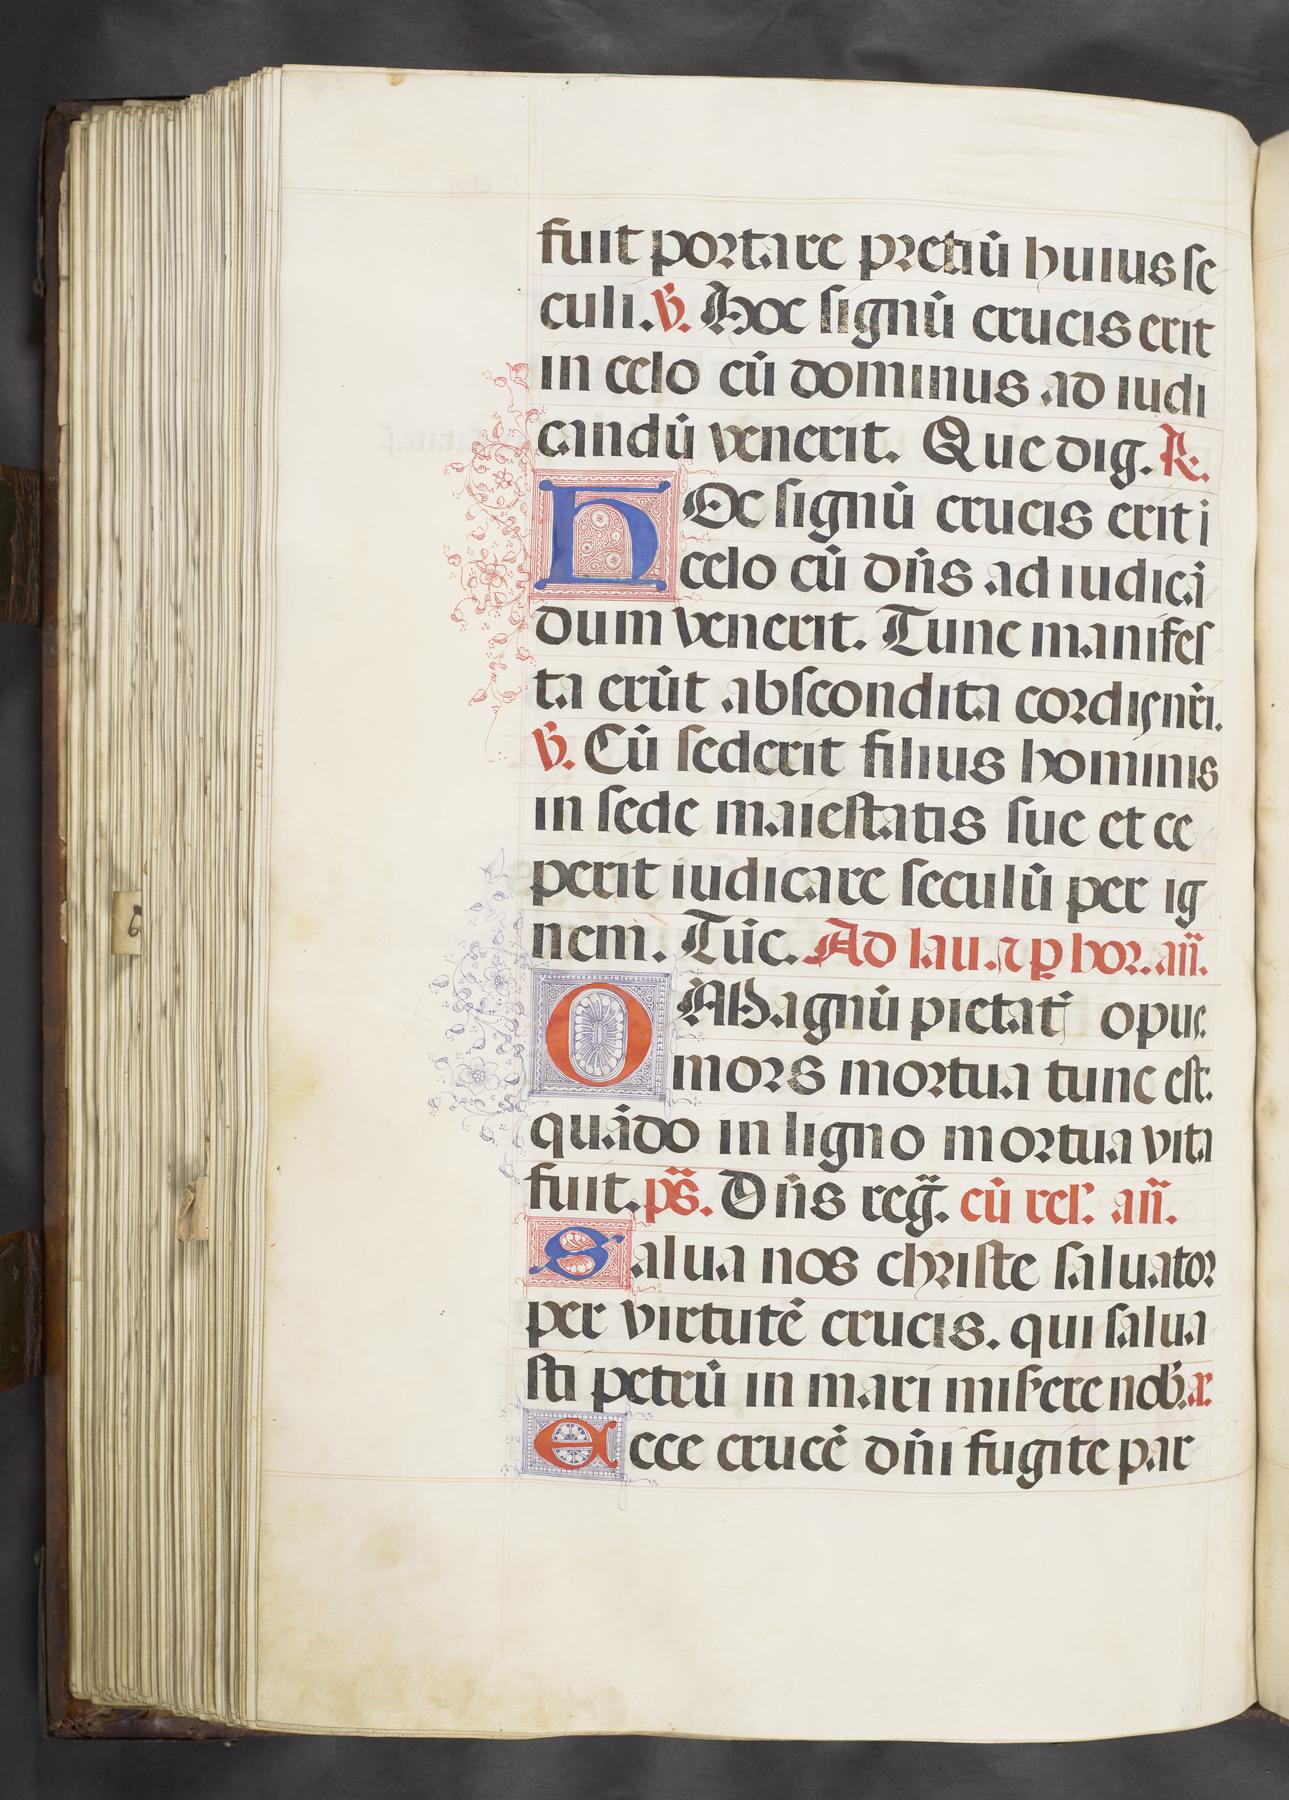 fuit portare pretiū huius se
culi. V. Hoc signū crucis erit
in celo cū dominus ad iudi
candū venerit. Que dig. R.
HOc signū crucis erit ī
celo cū dn̄s ad iudicā
dum venerit. Tunc manifes
ta erūt abscondita cordis nr̄i.
V. Cū sederit filius hominis
in sede maiestatis sue et ce
perit iudicare seculū per ig
nem. Tūc. Ad lau. ⁊ ꝑ hor. an̄.
O Magnū pietatꝭ opus
mors mortua tunc est.
quādo in ligno mortua vita
fuit. ps̄. Dn̄s reḡ. cū rel'. an̄.
Salua nos christe saluator
per virtutē crucis. qui salua
sti petrū in mari miserere nob̄. a.
Ecce crucē dn̄i fugite par
6